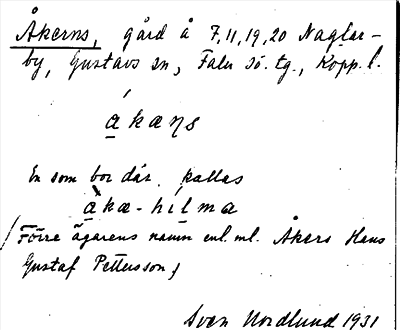 Åkerns, gård å 7, 11, 19, 20 Naglar-
by, Gustavs sn, Falu sö. tg., Kopp. l.
ákæŋs
En som bor där kallas
àkæ-hílma
(Förre ägarens namn enl. ml. Åkers Hans
Gustaf Pettersson)
Sven Nordlund 1931